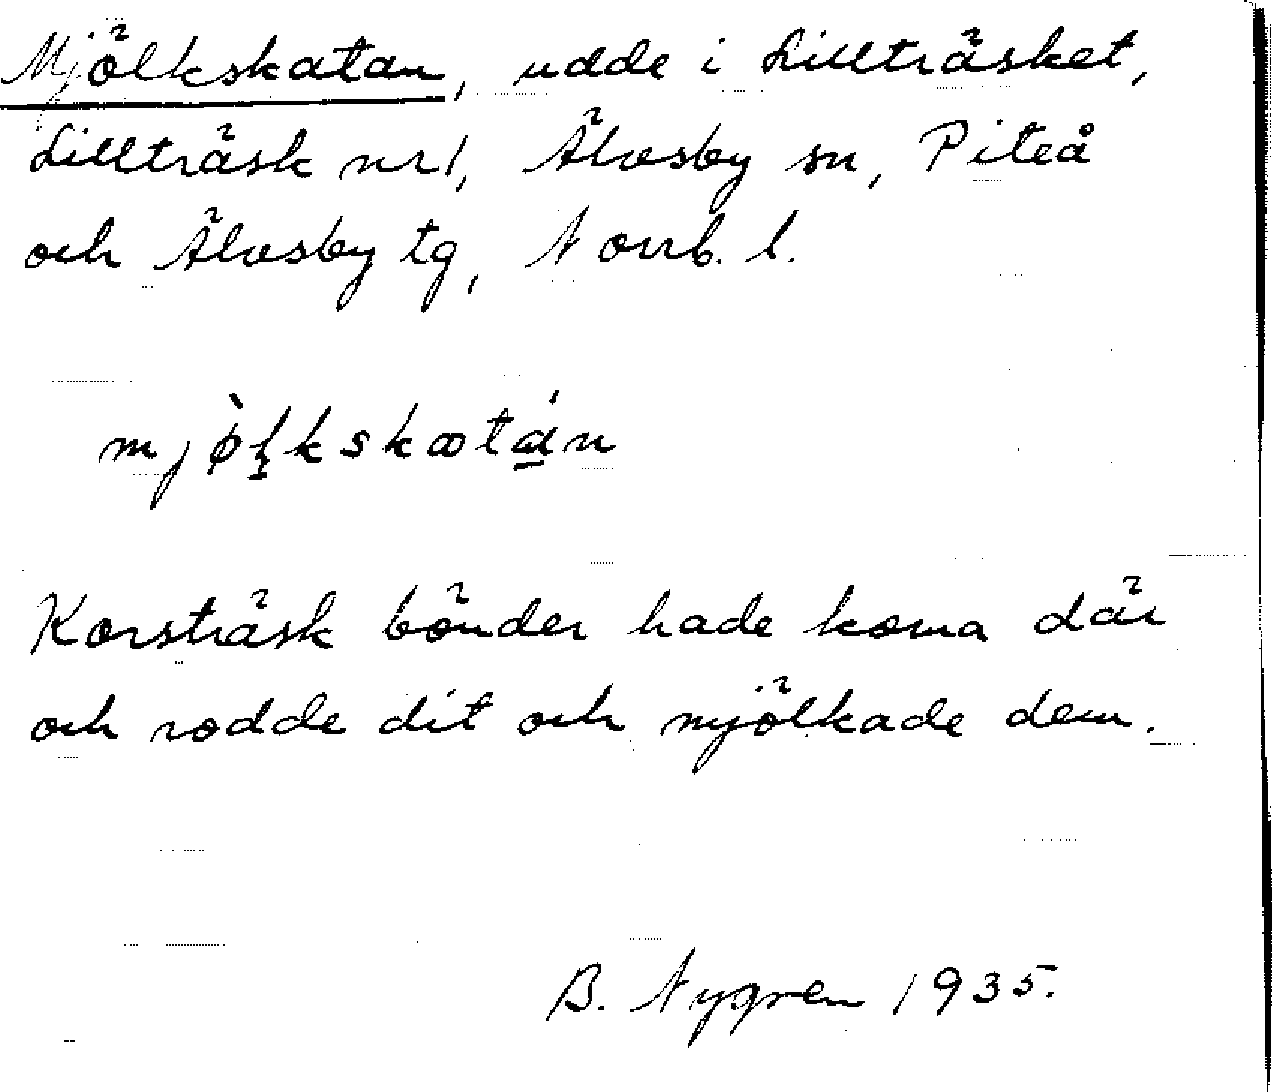 Mjölkskatan, udde i Lillträsket,
Lillträsk nr 1, Älvsby sn, Piteå
och Älvsby tg, Norrb. l.
mjø̀ḷkskatán
Korsträsk bönder hade korna där
och rodde dit och mjölkade dem.
B. Nygren 1935.